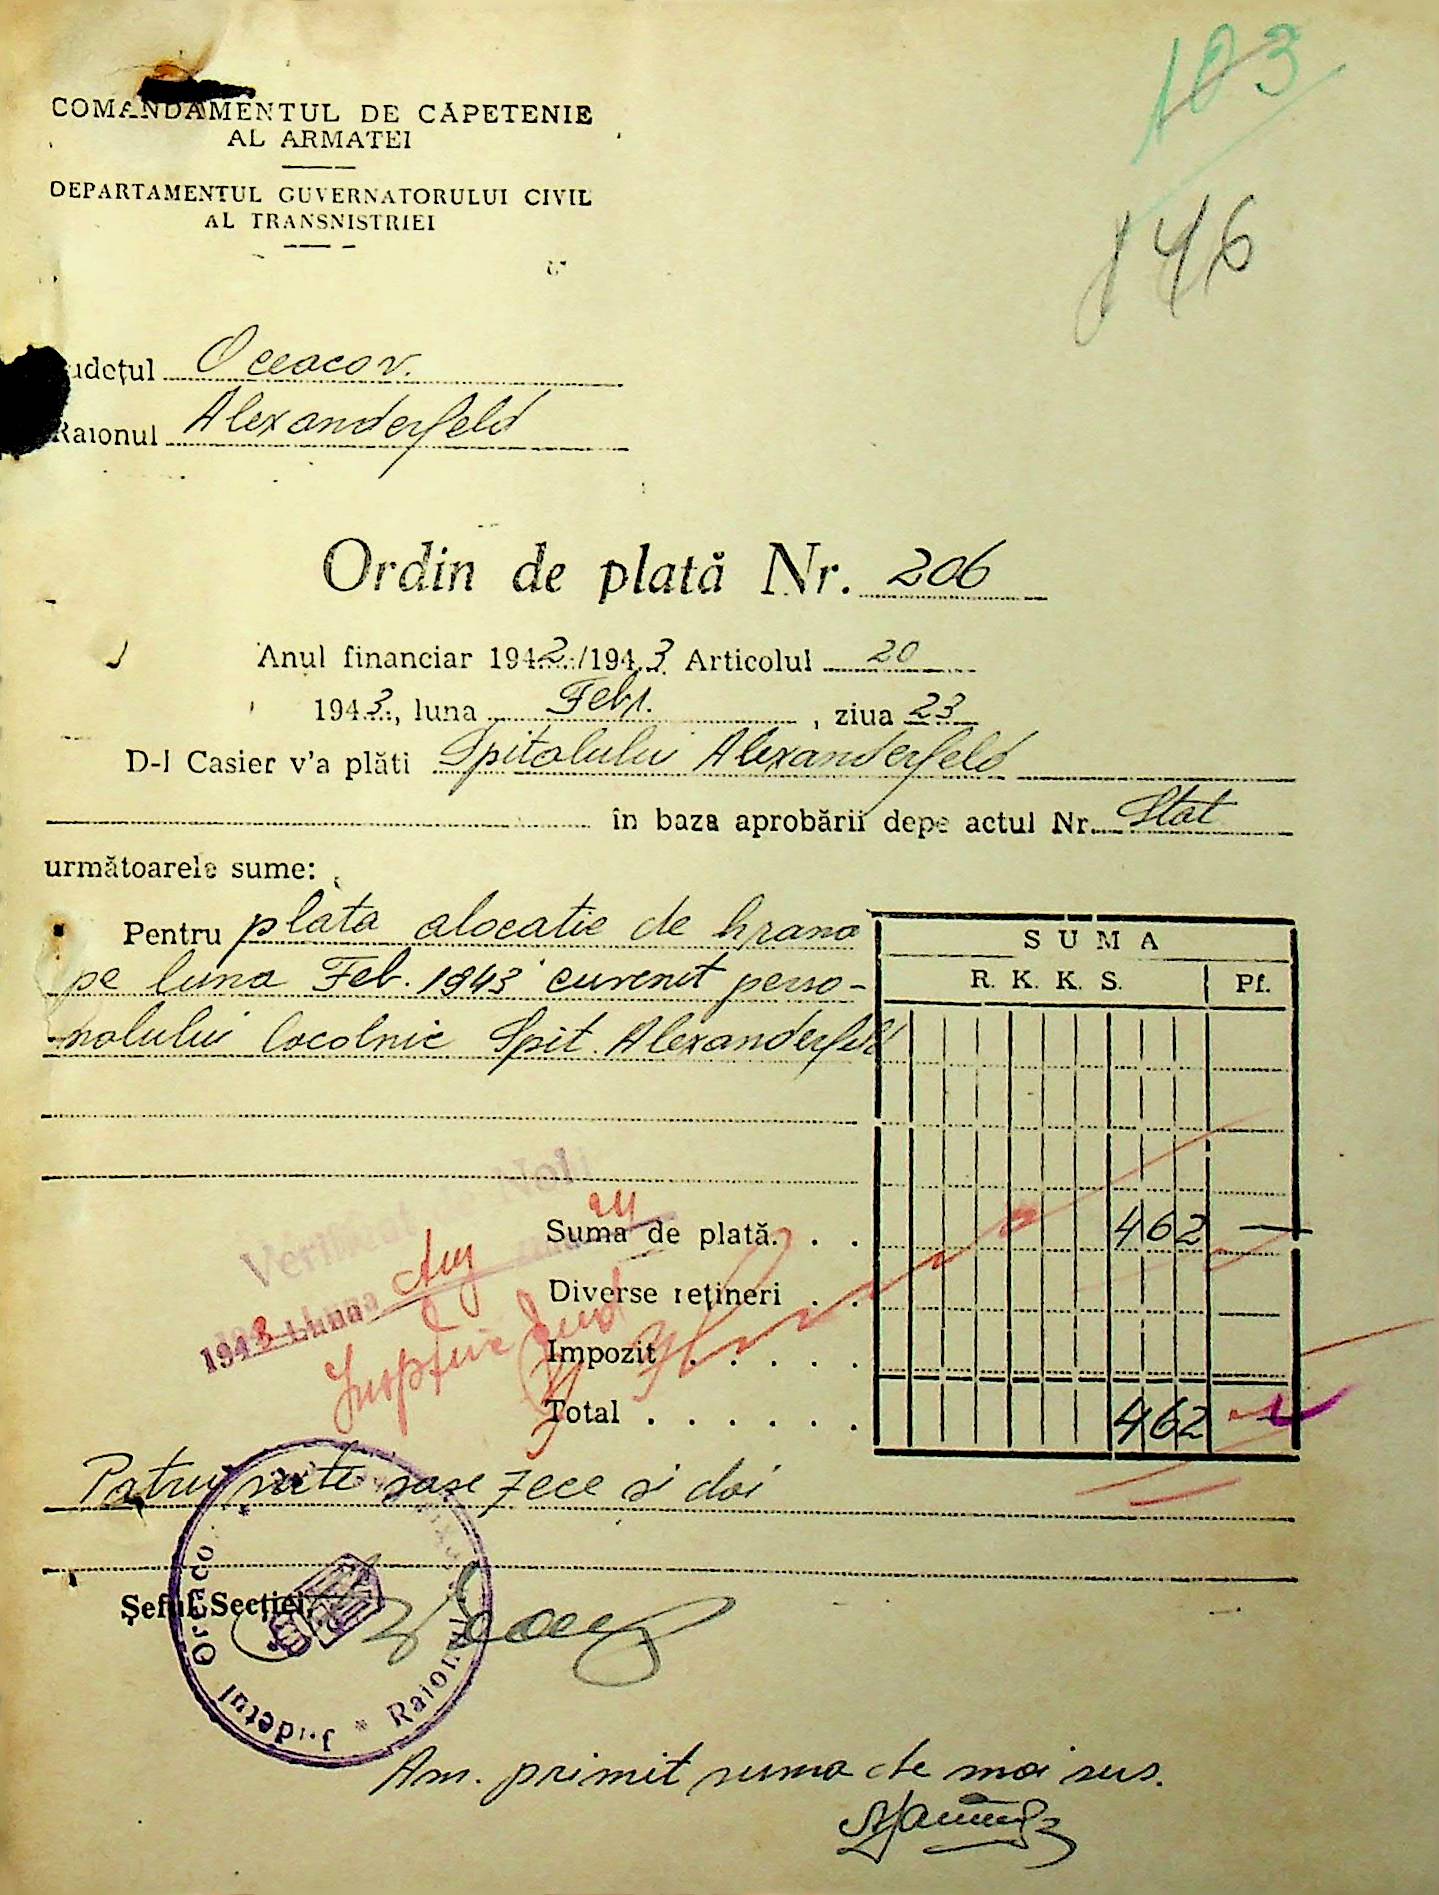 103
146
COMANDAMENTUL DE CĂPETENIE
AL ARMATEI
DEPARTAMENTUL GUVERNATORULUI CIVIL
AL TRANSNISTRIEI
Județul Oceacov.
Raionul Alexanderfeld
Ordin de plată Nr. 206
Anul financiar 1942/1943 Articolul 20
1943, luna Febr. , ziua 23
D-l Casier v'a plăti Spitalului Alexanderfeld
în baza aprobării depe actul Nr. Stat
următoarele sume:
Pentru plata alocatie de hrana
pe luna Feb. 1943 cuvenit perso-
nalului localnic Spit. Alexanderfeld
SUMA
R. K. K. S. Pf.
Verificat Noi
1943 Luna Aug
Suma de plată. . . 462 —
Diverse rețineri . .
Impozit . . . . . .
Total . . . . . . . 462 —
Patru sute sase zece si doi
Șeful Secției
Județul Oceaco * Raionul
Am primit suma de mai sus.